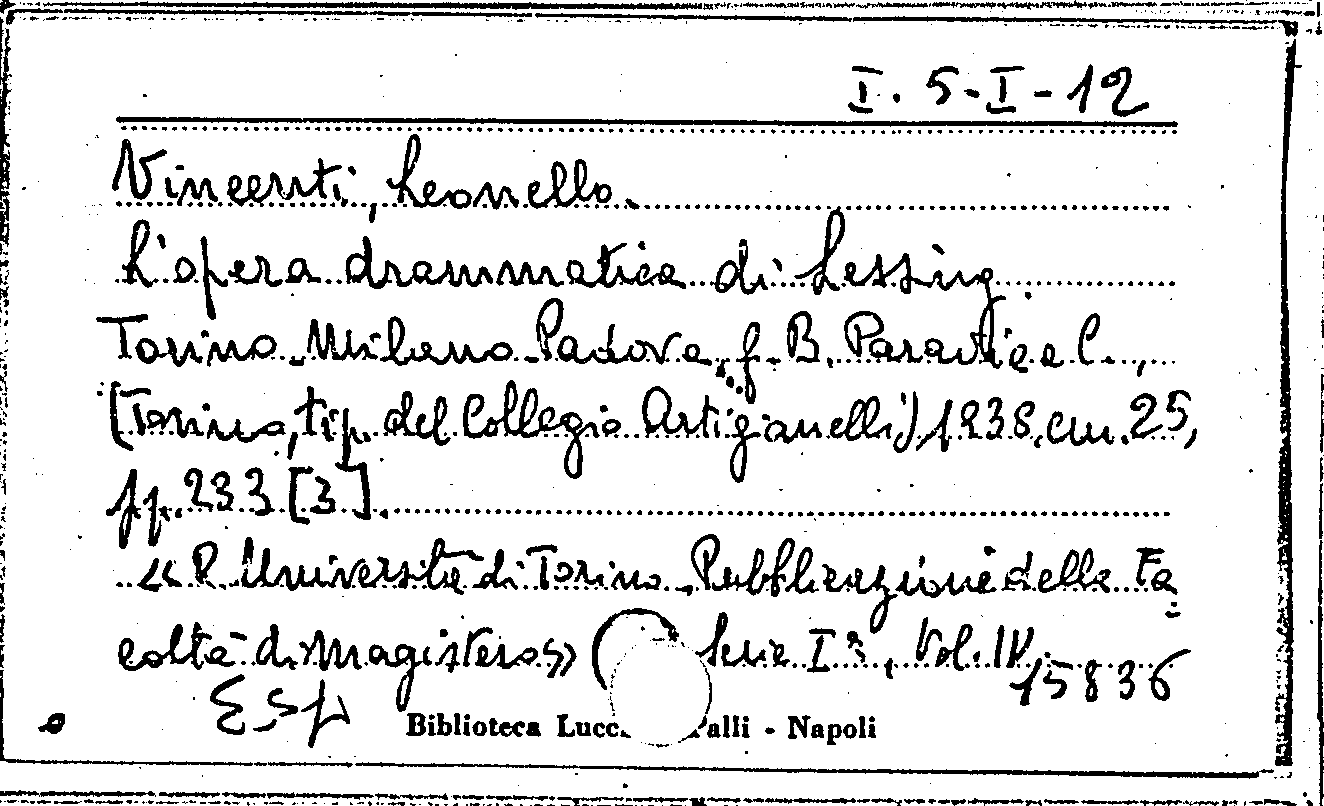 I. 5-I-12
Vincenti, Leonello.
L'opera drammatica di Lessing.
Torino-Milano-Padova, G. B. Paravia e C.,
(Torino, tip. del Collegio Artigianelli) 1938, cm. 25,
pp. 233 [3].
«R. Università di Torino. Pubblicazione della Fa
coltà di Magistero» ( Serie Iª, Vol. IV,
15836
Biblioteca Lucc Palli - Napoli